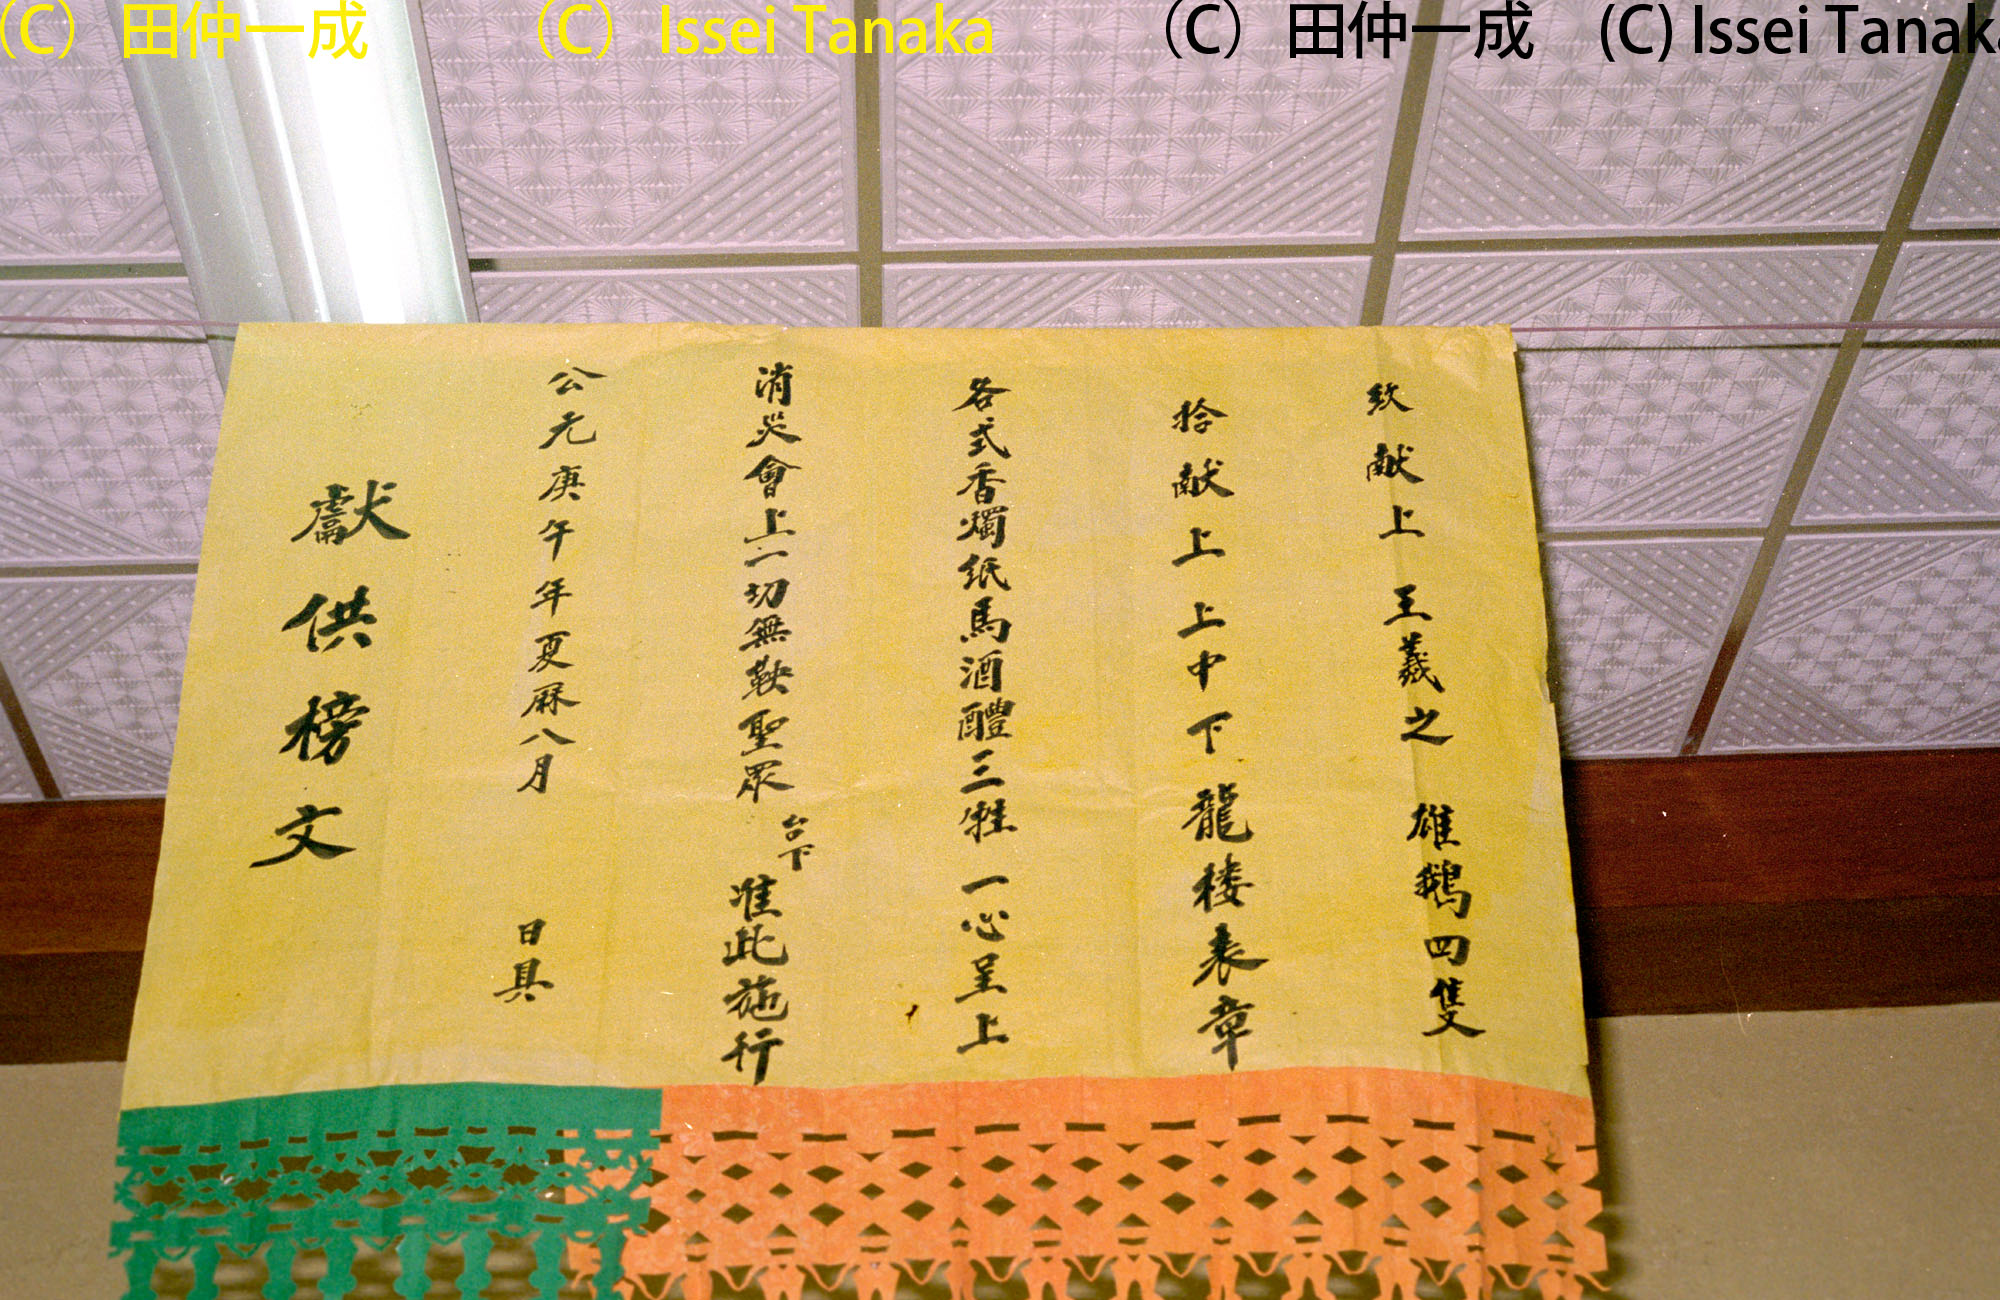 （C） 田仲一成 （C） Issei Tanaka （C） 田仲一成 (C) Issei Tanaka
献上 王羲之 雄鵝四隻
拾献上 上中下 龍楼表章
各式香燭紙馬酒醴三牲 一心呈上
消災會上一切無鞅聖眾 台下 准此施行
公元庚午年夏厤八月 日具
獻供榜文